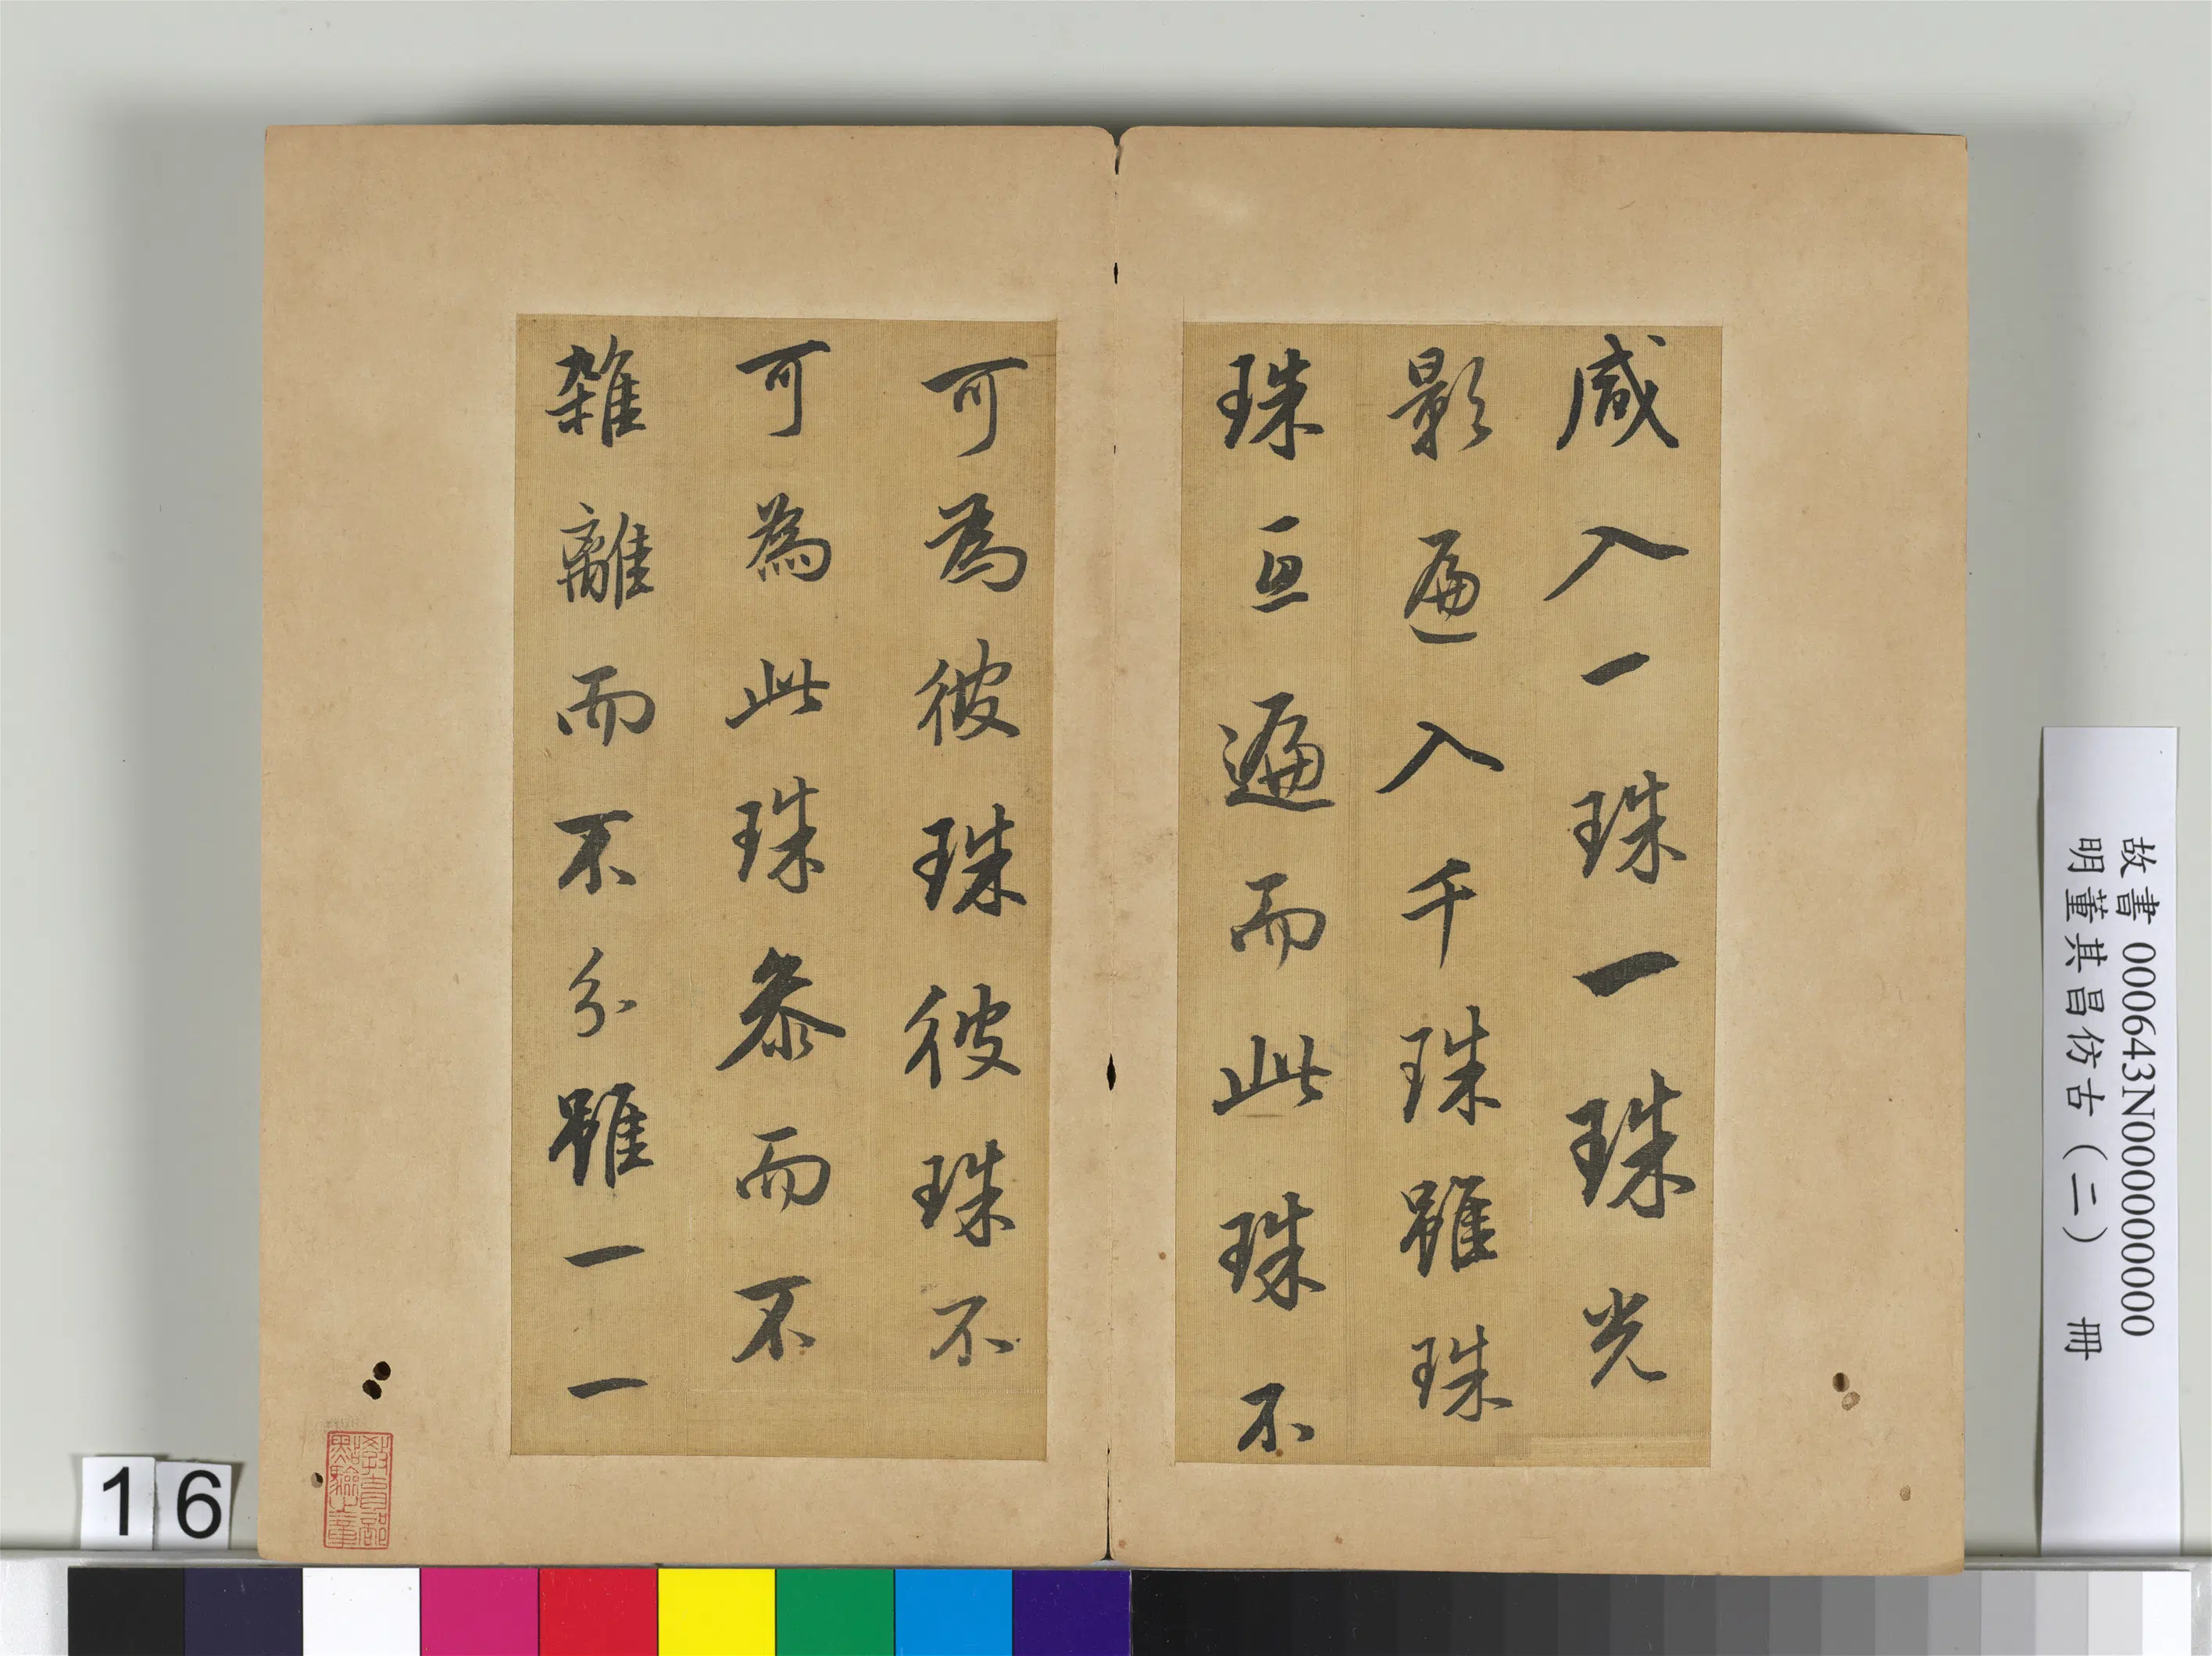 咸入一珠一珠光
影遍入千珠雖珠
珠互遍而此珠不
可為彼珠彼珠不
可為此珠叅而不
雜離而不分雖一一
教育部點驗之章
16
故書 000643N000000000
明董其昌仿古（二） 冊